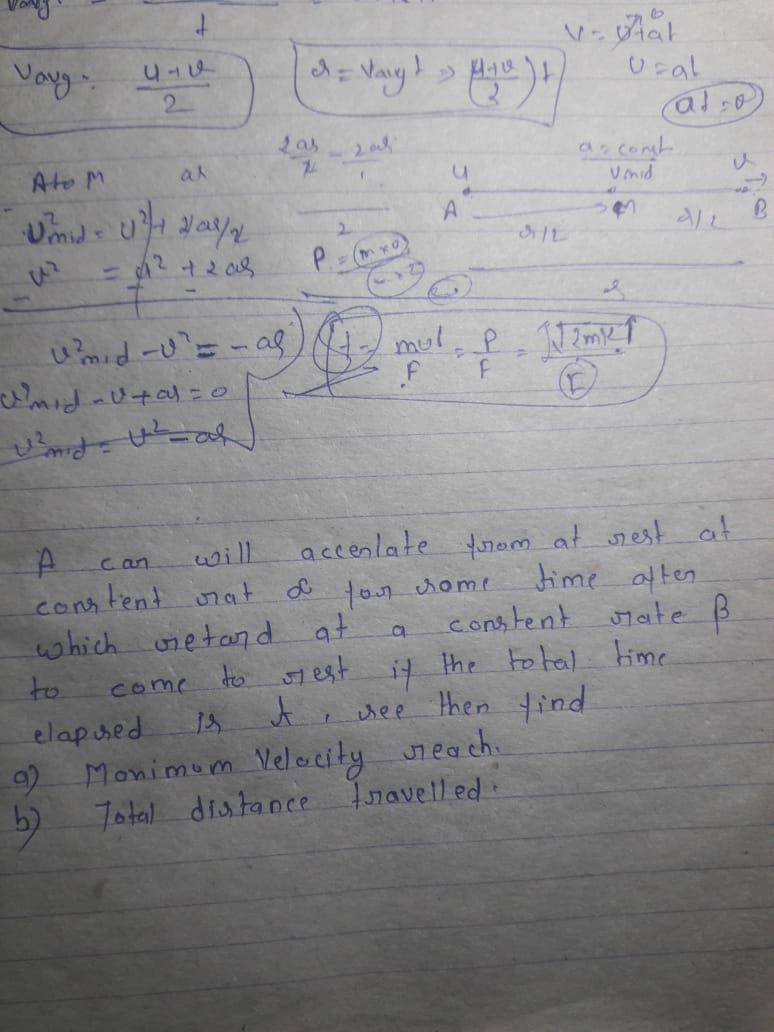 t
Vavg = u+v/2
s = Vavg t => (u+v/2) t
v = u+at
v = at
A to M
V²mid = u² + 2as/2
v² = u² + 2as
a = const
u
Vmid
v
A
M
B
s/2
s/2
s
V²mid - v² = -as
t = mv/F = P/F = √2mk/F
V²mid - v + as = 0
V²mid = v² - as
A can will accenlate from at rest at
constent rat α for some time after
which retard at a constent rate β
to come to rest if the total time
elapsed is t, see then find
a) Monimum Velocity reach.
b) Total distance travelled.